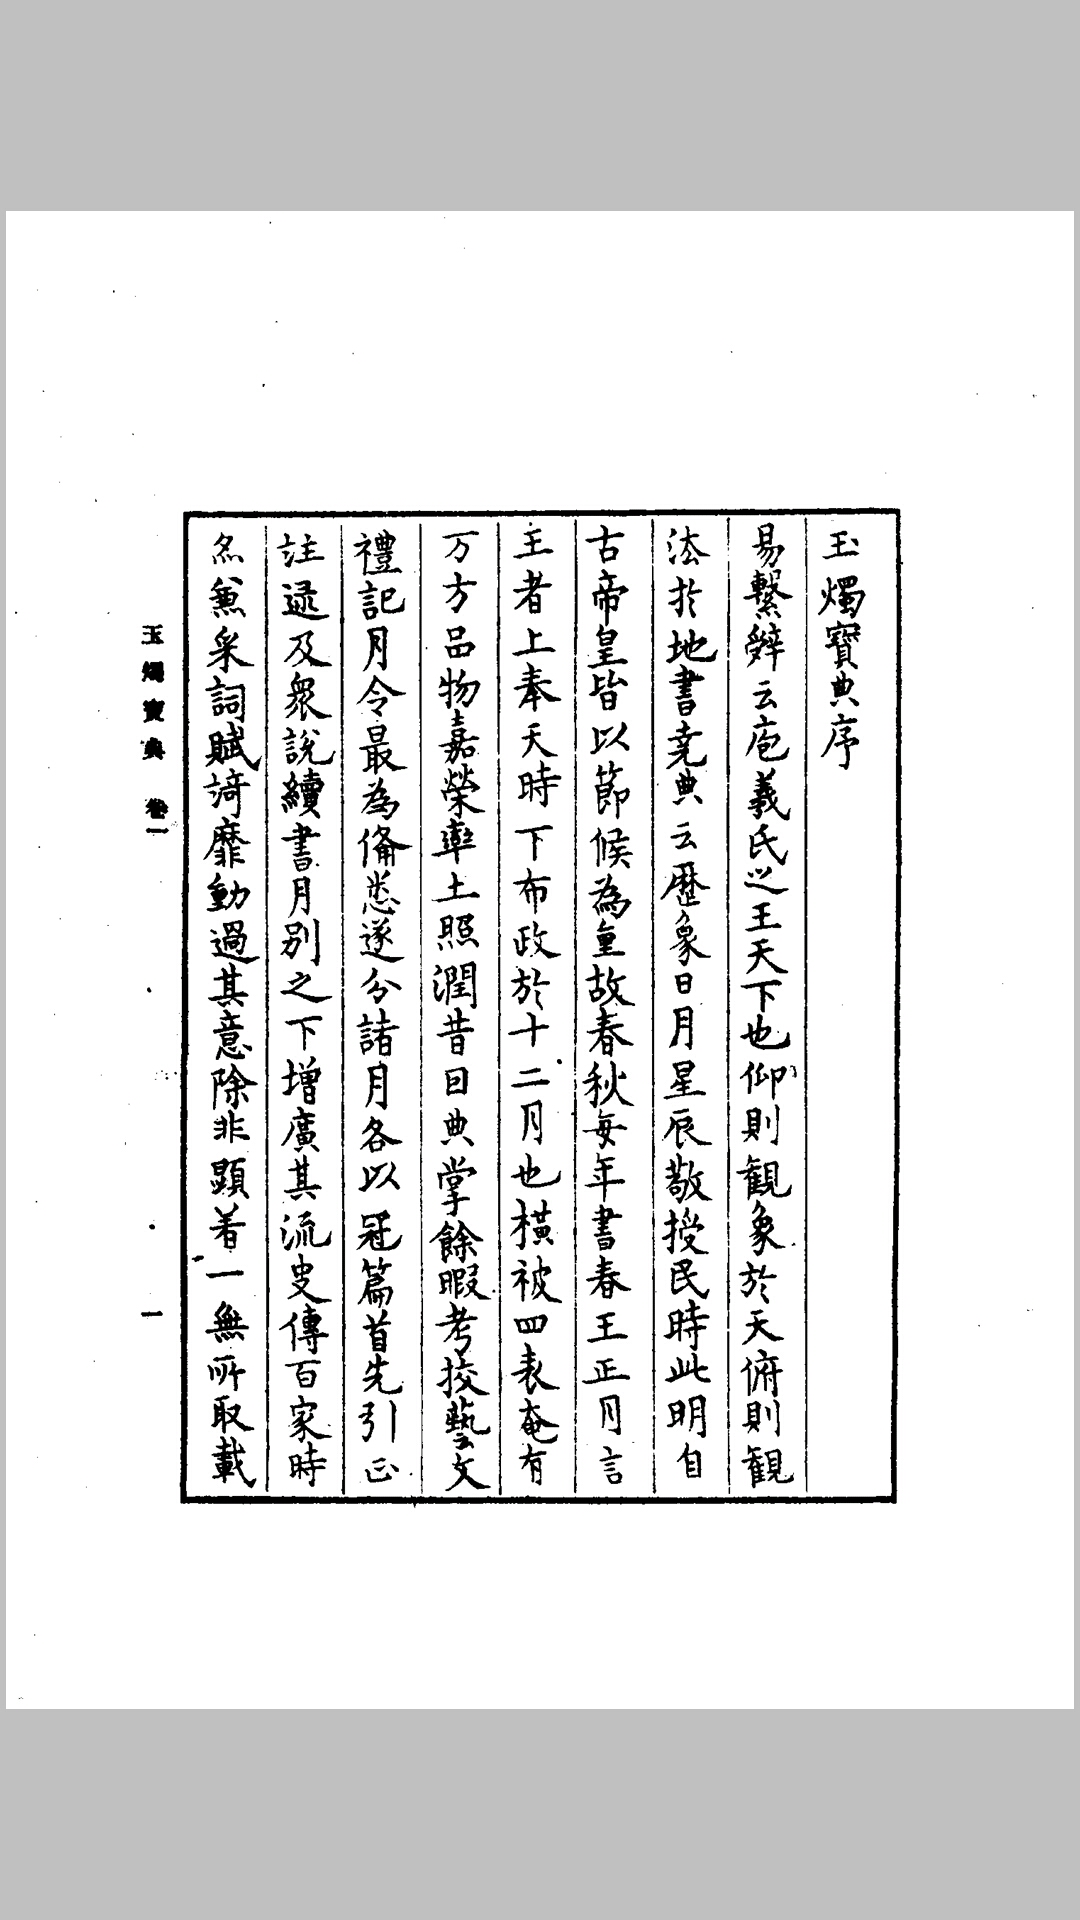 玉燭寶典序
易繫辝云庖羲氏之王天下也仰則觀象於天俯則觀
法於地書堯典云歷象日月星辰敬授民時此明自
古帝皇皆以節候為重故春秋每年書春王正月言
王者上奉天時下布政於十二月也橫被四表奄有
万方品物嘉榮率土照潤昔因典掌餘暇考挍藝文
禮記月令最為俻悉遂分諸月各以冠篇首先引正
註逯及衆說續書月別之下增廣其流史傳百家時
亦兼采詞賦綺靡動過其意除非顯著一無所取載
玉燭寶典 卷一 一